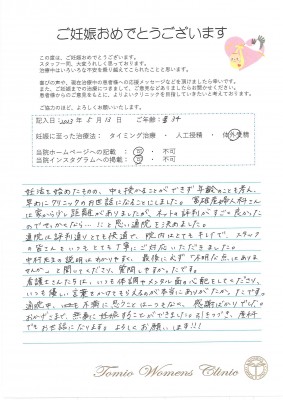 ご妊娠おめでとうございます
この度は、ご妊娠おめでとうございます。
スタッフ一同、大変うれしく思っております。
治療中はいろいろな不安を乗り越えてこられたことと思います。
喜びの声や、現在治療中の患者様への応援メッセージなどを頂けましたら幸いです。
また、ご妊娠までの治療につきまして、ご意見などありましたらお聞かせください。
患者様からのご意見をもとに、よりよいクリニックを目指していきたいと考えております。
ご協力のほど、よろしくお願いいたします。
記入日:2023年 5月 13日 ご年齢:34
妊娠に至った治療法: タイミング治療 ・ 人工授精 ・ 体外受精
当院ホームページへの記載: 可 ・ 不可
当院インスタグラムへの掲載: 可 ・ 不可
妊活を始めたものの、中々授かることができず年齢のことも考え、
早めにクリニックのお世話になることにしました。富雄産婦人科さん
は家から少し距離がありましたが、ネットの評判がすごく良かった
のでせっかくなら…と思い通院を決めました。
通院は評判通りとても快適で、院内はとてもキレイで、スタッフ
の皆さんもいつもとても丁寧にご対応いただきました。
中村先生の説明は分かりやすく、最後に必ず「不明な点はありま
せんか」と聞いてくださり、質問しやすかったです。
看護士さんたちは、いつも体調やメンタル面も心配をしてくださり、
いつも優しい言葉をかけてもらえるのが本当にありがたかったです。
通院中、嫌な不満に思うことは一つもなく、感謝ばかりでした。
おかげさまで、無事に妊娠することができました。引きつづき、産科
でもお世話になります。よろしくお願いします!!
Tomio Womens Clinic